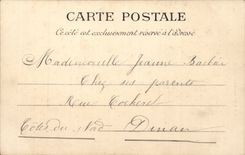 CARTE POSTALE
Ce côté est exclusivement réservé à l'adresse
Mademoiselle Jeanne Barbier
Chez ses parents
Rue
Côtes du Nord Dinan